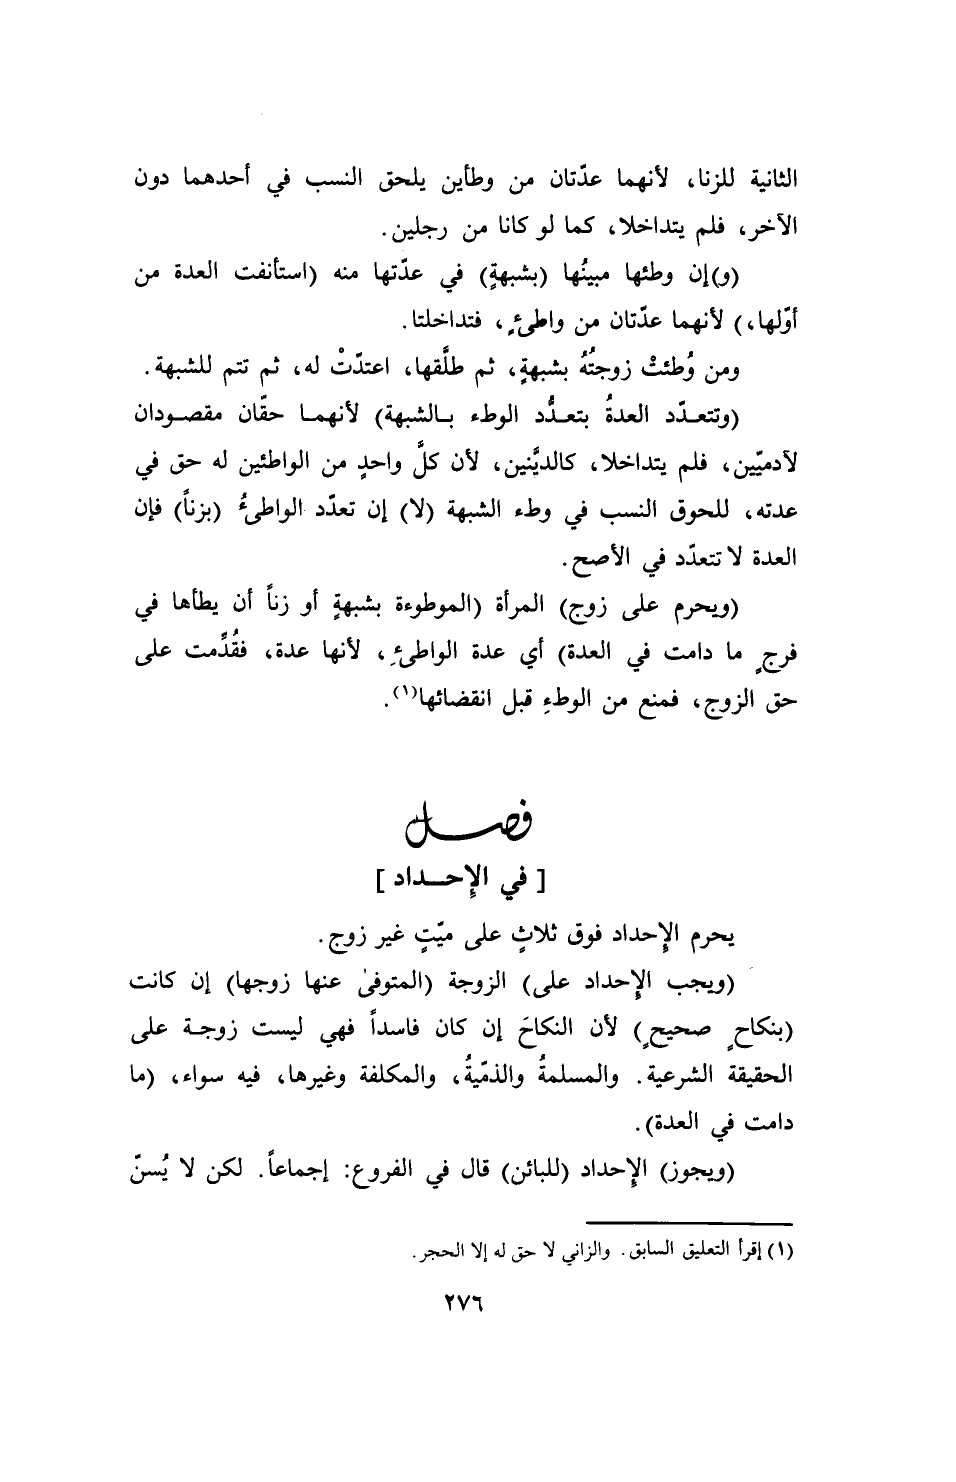 الثانية للزنا، لأنهما عدّتان من وطأين يلحق النسب في أحدهما دون
الآخر، فلم يتداخلا، كما لو كانا من رجلين.
(و)إن وطئها مبينُها (بشبهةٍ) في عدّتها منه (استأنفت العدة من
أوّلها،) لأنهما عدّتان من واطىءٍ، فتداخلتا.
ومن وُطئتْ زوجتُهُ بشبهةٍ، ثم طلَّقها، اعتدّتْ له، ثم تتم للشبهة.
(وتتعـدّد العدةُ بتعـدُّد الوطء بـالشبهة) لأنهمـا حقّان مقصـودان
لآدميّين، فلم يتداخلا، كالديَّنين، لأن كلَّ واحدٍ من الواطئين له حق في
عدته، للحوق النسب في وطء الشبهة (لا) إن تعدّد الواطىءُ (بزناً) فإن
العدة لا تتعدّد في الأصح.
(ويحرم على زوج) المرأة (الموطوءة بشبهةٍ أو زناً أن يطأها في
فرجٍ ما دامت في العدة) أي عدة الواطىءِ، لأنها عدة، فقُدِّمت على
حق الزوج، فمنع من الوطءِ قبل انقضائها(١).
فصــل
[ في الإِحــداد ]
يحرم الإِحداد فوق ثلاثٍ على ميّتٍ غير زوج.
(ويجب الإِحداد على) الزوجة (المتوفىٰ عنها زوجها) إن كانت
(بنكاحٍ صحيحٍ) لأن النكاحَ إن كان فاسداً فهي ليست زوجـة على
الحقيقة الشرعية. والمسلمةُ والذمّيةُ، والمكلفة وغيرها، فيه سواء، (ما
دامت في العدة).
(ويجوز) الإِحداد (للبائن) قال في الفروع: إجماعاً. لكن لا يُسنّ
(١) إقرأ التعليق السابق. والزاني لا حق له إلا الحجر.
٢٧٦